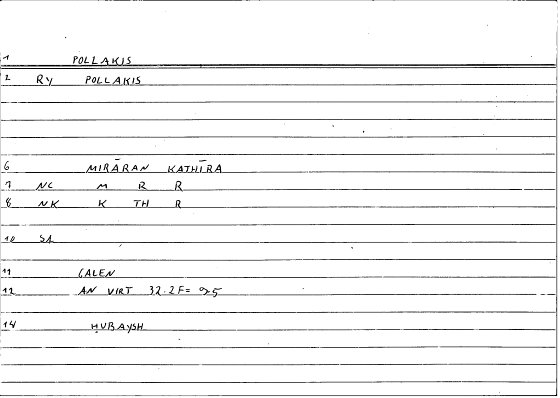 1 POLLAKIS
2 RY POLLAKIS
6 MIRĀRAN KATHĪRA
7 NC M R R
8 NK K TH R
10 SA
11 GALEN
12 AN VIRT 32.2F=
14 ḤUBAYSH